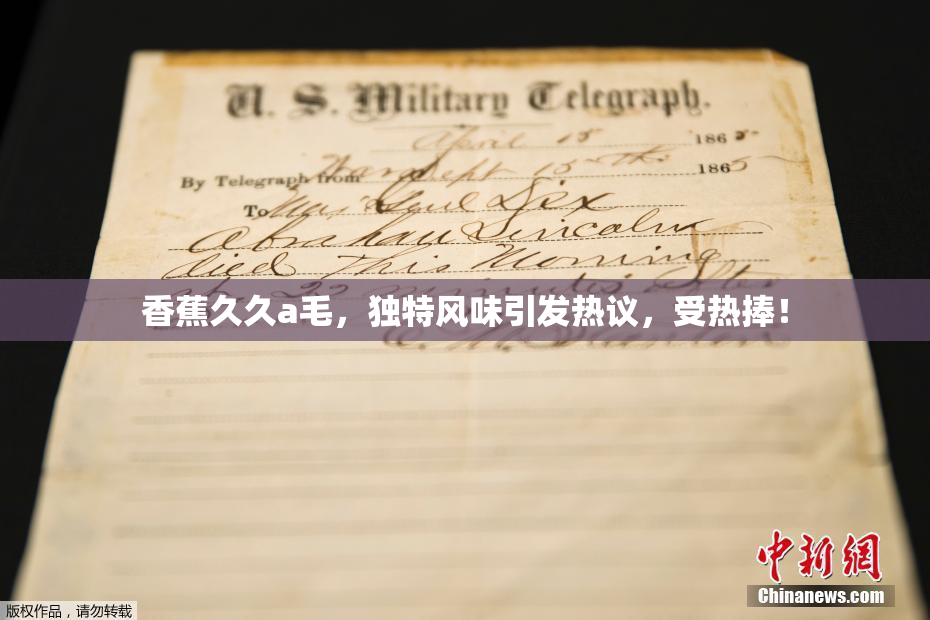 U. S. Military Telegraph.
April 15 1865
By Telegraph from War Dept 15th 1865
To Maj Genl Dix
Abraham Lincoln
died This Morning
at 22 minutes after
香蕉久久a毛，独特风味引发热议，受热捧！
E. M. Stanton
中新网
Chinanews.com
版权作品，请勿转载